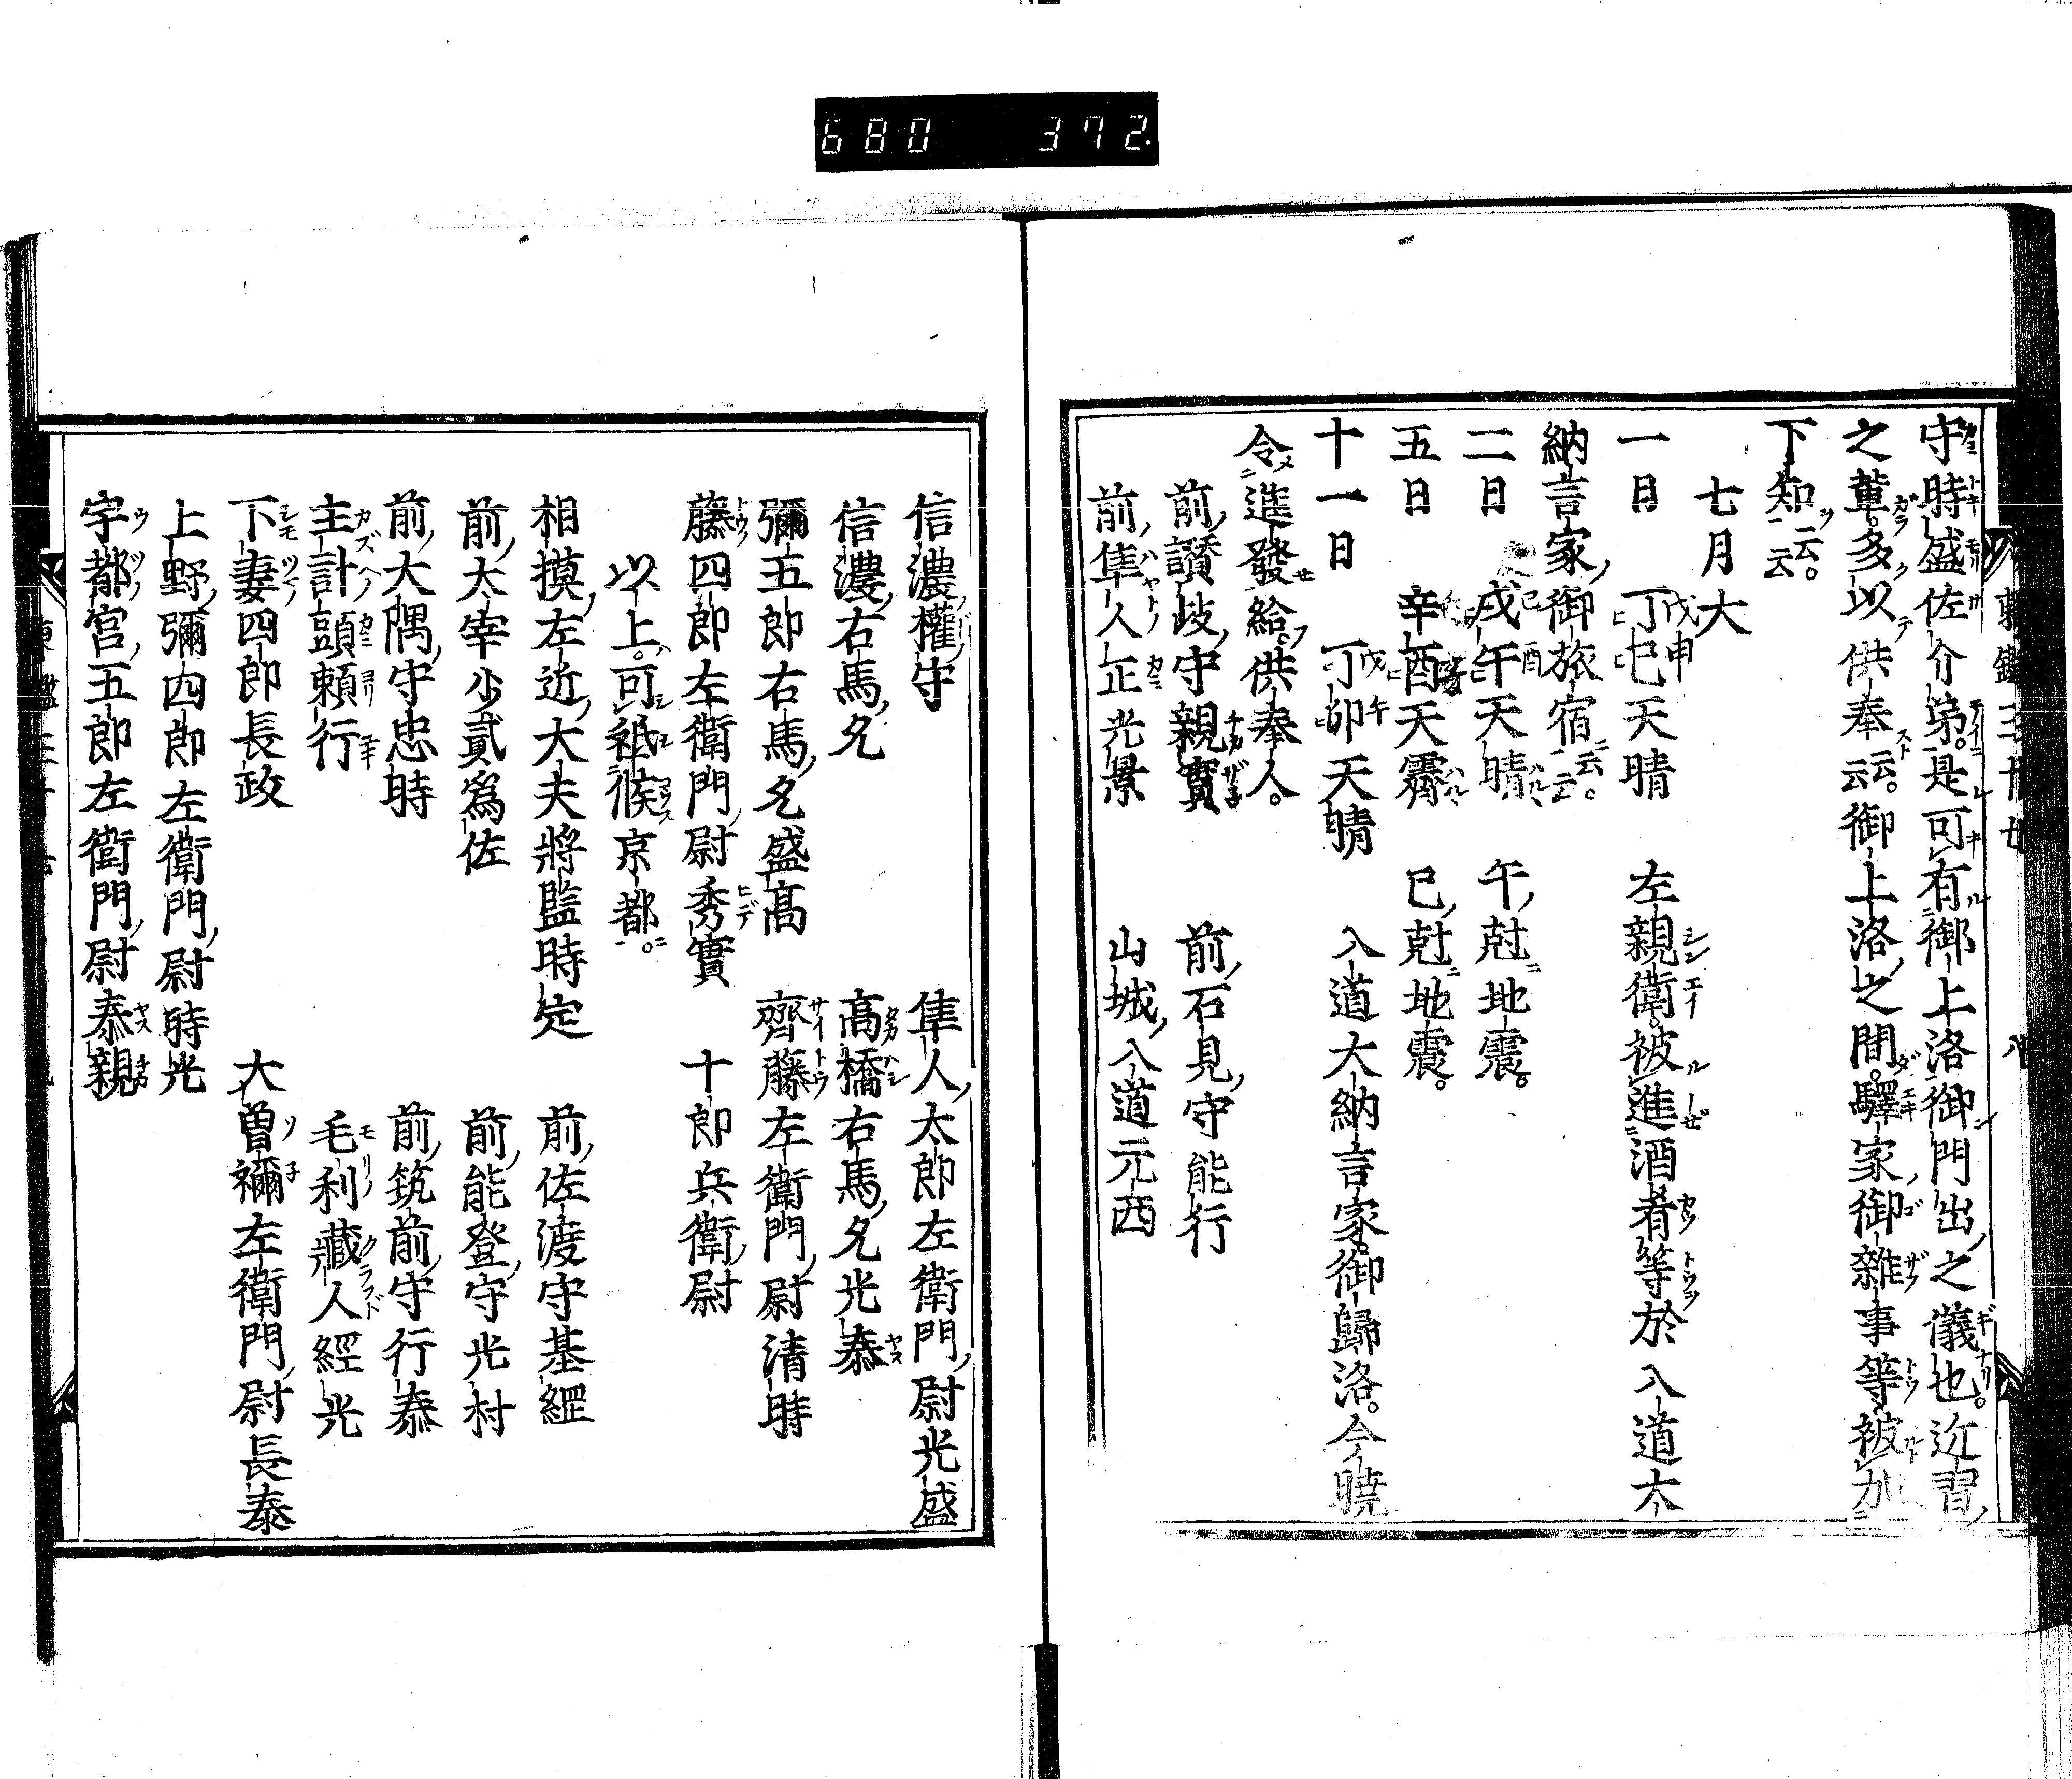 680 372.
守時盛佐介第。是可有御上洛御門出之儀也。近習
之輩。多以供奉云云。御上洛之間。驛家御雜事等。被加
下知云云。
七月大
一日 丁巳天晴 左親衞。被進酒肴等於入道大
納言家御旅宿云云。
二日 戌午天晴 午尅地震。
五日 辛酉天霽 巳尅地震。
十一日 丁卯天晴 入道大納言家。御歸洛。今曉
令進發給。供奉人。
前讃岐守親實 前石見守能行
前隼人正光景 山城入道元西
信濃權守 隼人太郎左衞門尉光盛
信濃右馬允 高橋右馬允光泰
彌五郎右馬允盛高 齊藤左衞門尉清時
藤四郎左衞門尉秀實 十郎兵衞尉
以上。可祗候京都。
相摸左近大夫將監時定 前佐渡守基綱
前太宰少貳爲佐 前能登守光村
前大隅守忠時 前筑前守行泰
主計頭頼行 毛利藏人經光
下妻四郎長政 大曽禰左衞門尉長泰
上野彌四郎左衞門尉時光
宇都宮五郎左衞門尉泰親